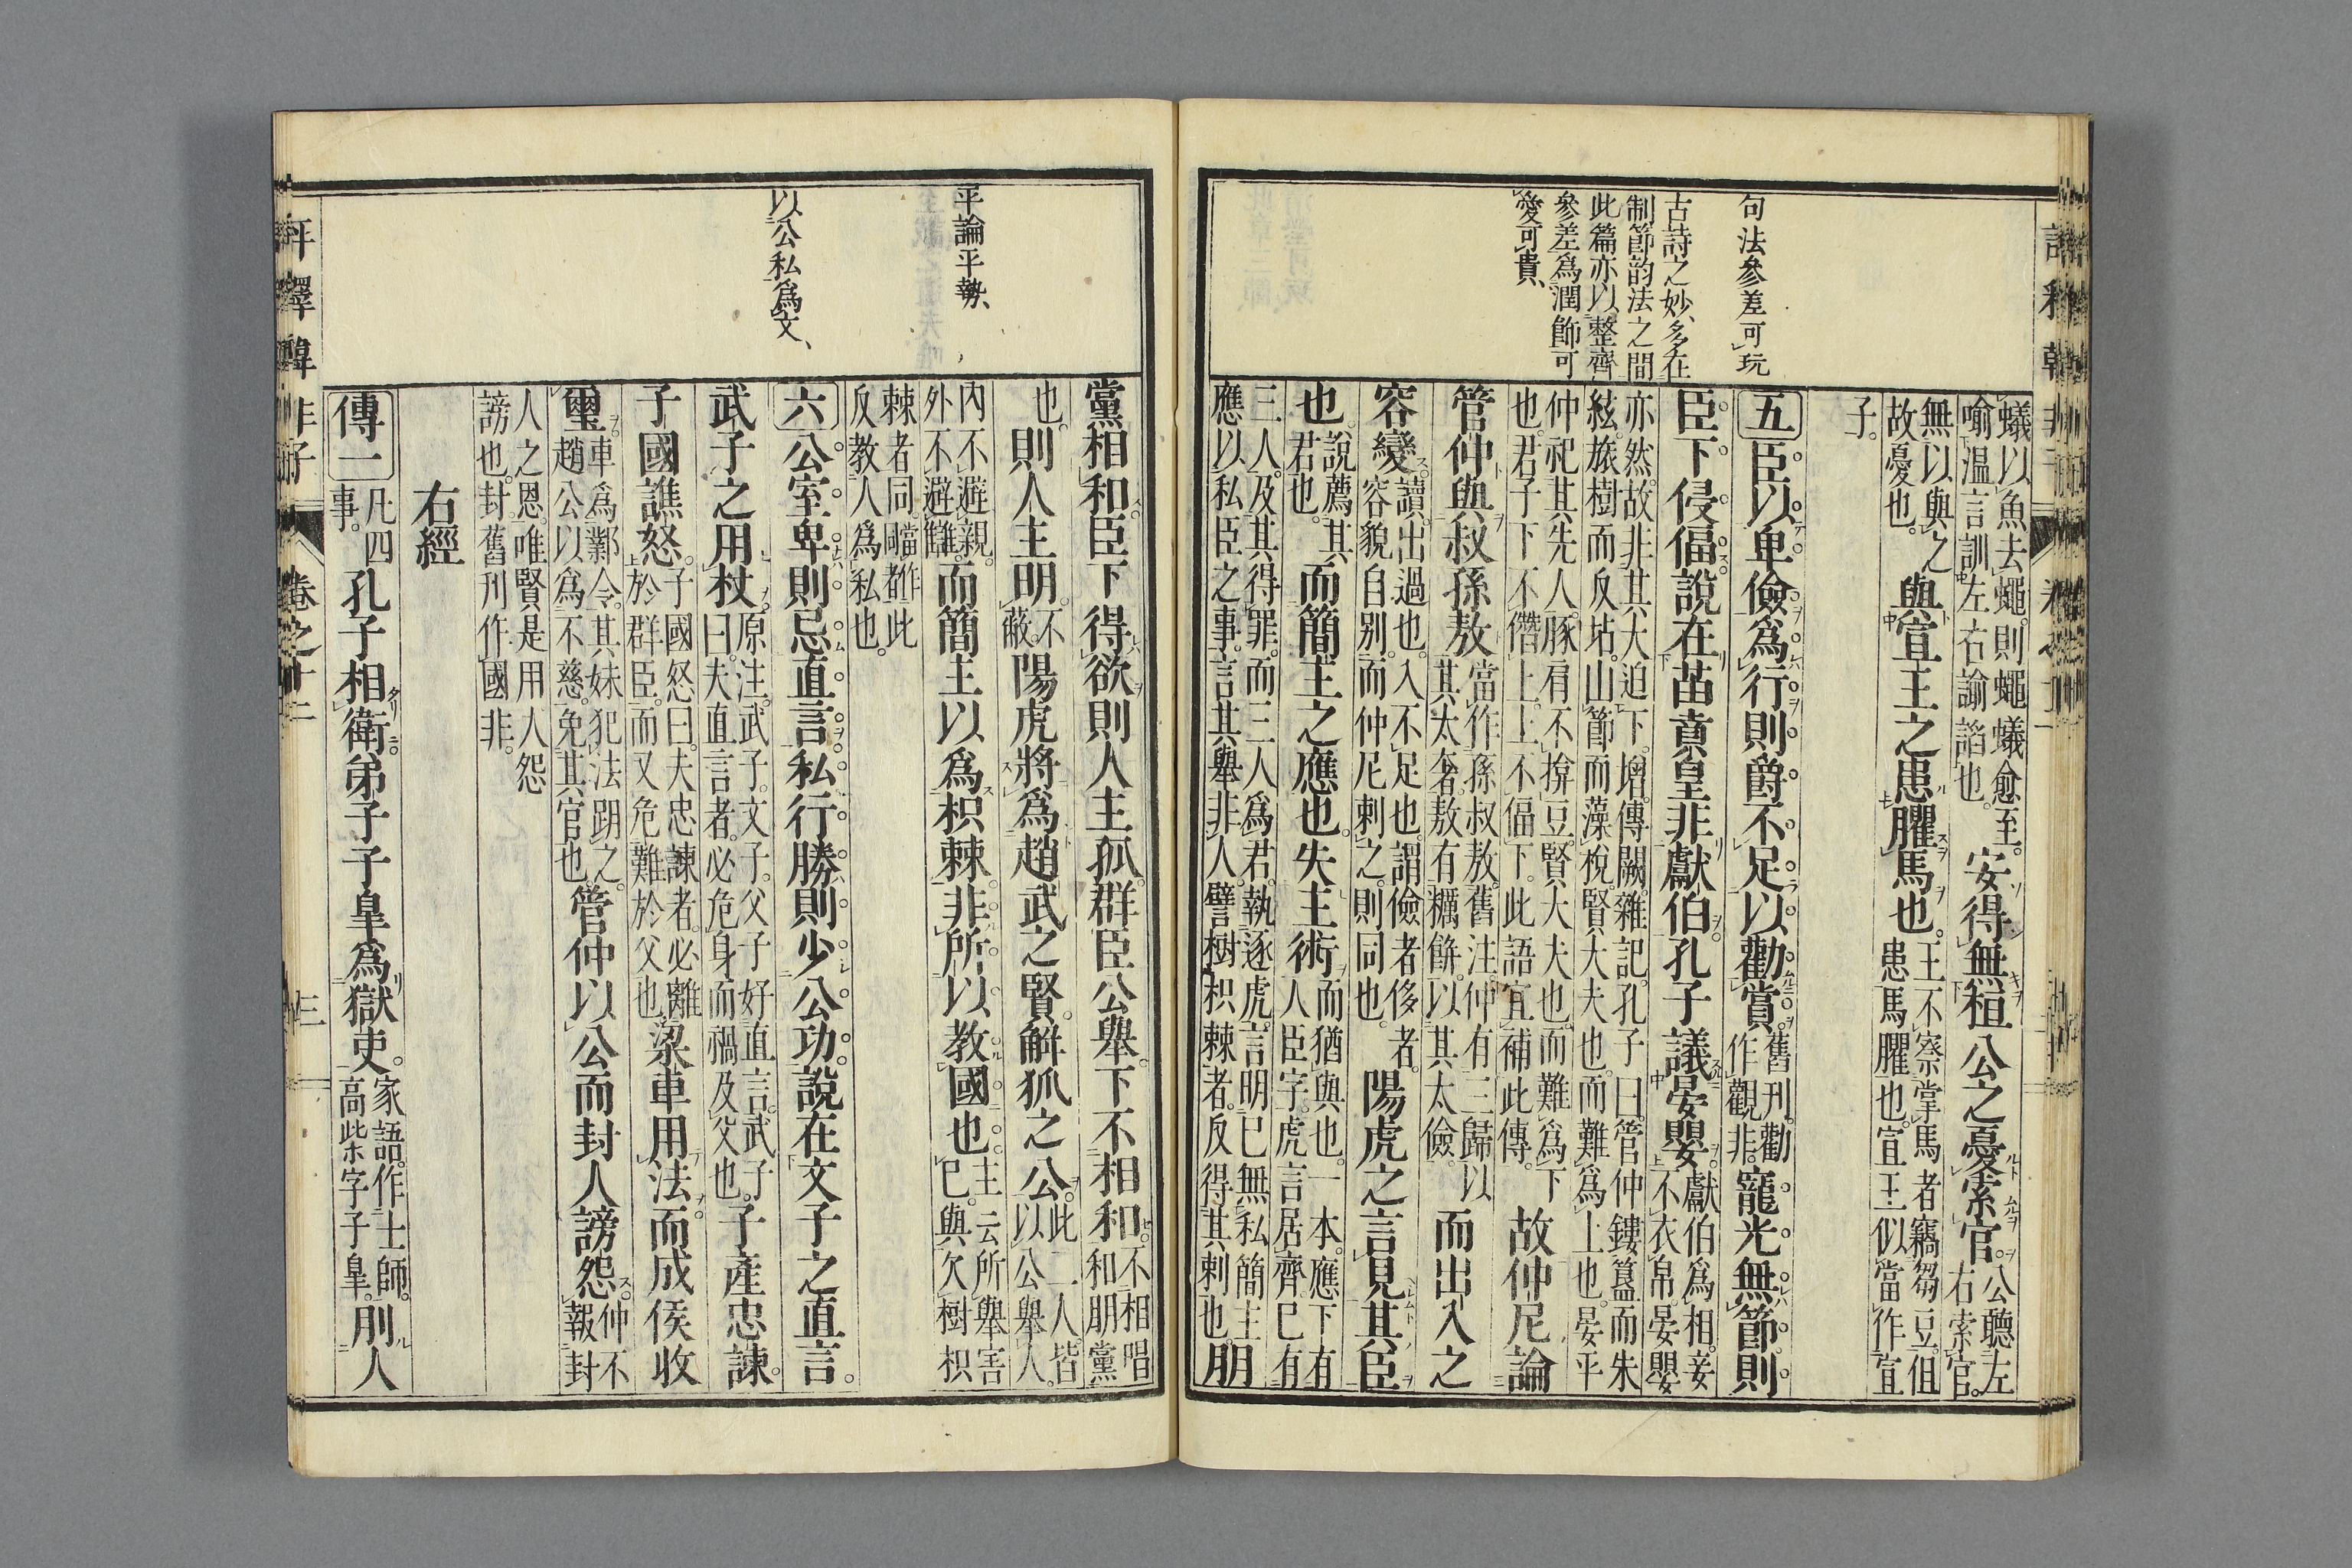 句法參差可玩
古詩之妙、多在
制節韵法之間
此篇亦以整齊
參差爲潤飾可
愛可貴、
蟻以魚去蠅則蠅蟻愈至。
喻温言訓左右諭諂也。
安得無桓公之憂索官。
公聽左
右索官。
無以與之
故憂也。
與宣王之患臞馬也。
王不察掌馬者竊芻豆但
患馬臞也宣王似當作宣
子。
五臣以卑儉爲行則爵不足以勸賞。
舊刊勸
作觀非。
寵光無節則
臣下侵偪説在苗賁皇非獻伯孔子議晏嬰
獻伯爲相妾
不衣帛晏嬰
亦然故非其大迫下。増傳闕雜記孔子曰管仲鏤簋而朱
紘旅樹而反坫山節而藻梲賢大夫也而難爲上也晏平
仲祀其先人豚肩不揜豆賢大夫也而難爲下
也君子下不僭上上不偪下。此語宜補此傳。
故仲尼論
管仲與叔孫敖
當作孫叔敖舊注仲有三歸以
其太奢敖有糲餅以其太儉。
而出入之
容變
讀出過也。入不足也。謂儉者侈者。
容貌自別而仲尼刺之則同也。
陽虎之言見其臣
也
説薦其
君也。
而簡主之應也。失主術
而猶與也。一本應下有
人臣字虎言居齊已有
三人及其得罪而三人爲君執逐虎言明已無私簡主
應以私臣之事言其舉非人譬樹枳棘者反得其刺也。
朋
黨相和臣下得欲則人主孤群臣公舉下不相和
不相唱
和朋黨
也。
則人主明。
不
蔽。
陽虎將爲趙武之賢解狐之公。
此二人皆
以公舉人。
内不避親。
外不避讎。
而簡主以爲枳棘非所以教國也
主云所舉害
已與欠樹枳
棘者同噹作此
反教人爲私也。
平論平勢、
以公私爲文、
六公室卑則忌直言私行勝則少公功説在文子之直言。
武子之用杖
原注武子文子父子好直言武子
曰夫直言者必危身而禍及父也。
子產忠諫
子國譙怒。
子國怒曰夫忠諫者必離
於群臣而又危難於父也
梁車用法而成侯收
璽
車爲鄴令其妹犯法跀之
趙公以爲不慈免其官也
管仲以公而封人謗怨。
仲不
報封
人之恩唯賢是用人怨
謗也封舊刊作國非。
右經
傳一
凡四
事。
孔子相衛弟子子皐爲獄吏。
家語作士師。
高柴字子皐。
刖人
評釋韓非子
卷之十二
三